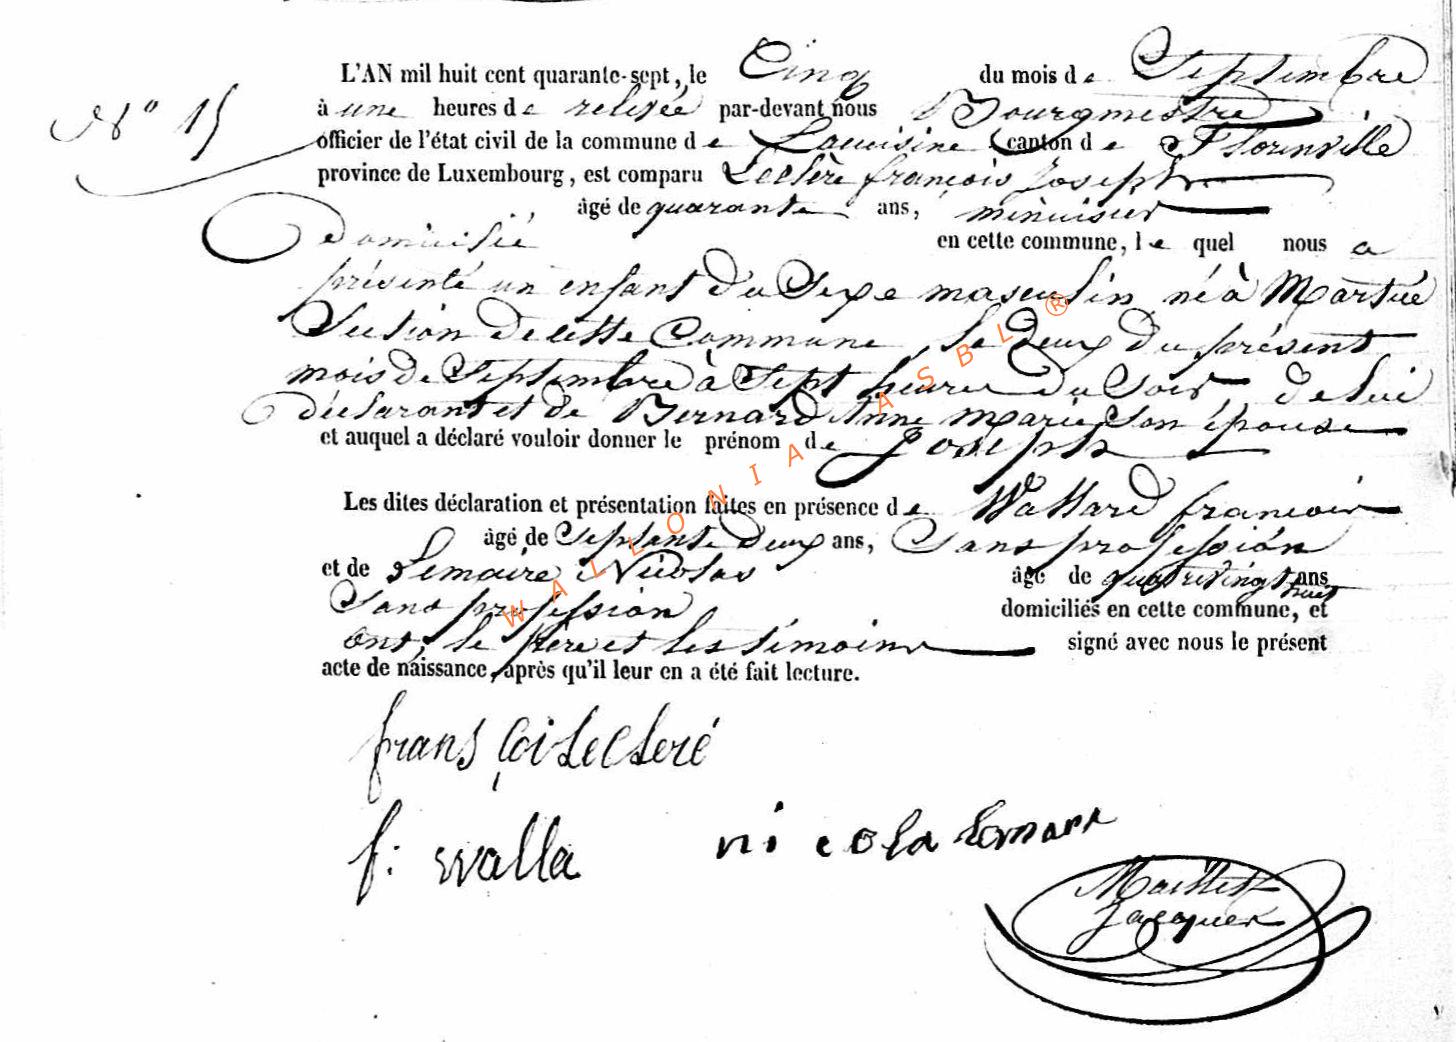 L'AN mil huit cent quarante-sept, le Cinq du mois de Septembre
N° 15
à une heures de relevée par-devant nous Bourgmestre
officier de l'état civil de la commune de Lacuisine canton de Florenville
province de Luxembourg, est comparu Leclère françois Joseph
âgé de quarante ans, menuisier
domicilié en cette commune, lequel nous a
présenté un enfant du Sexe masculin né à Martué
Section de cette Commune le deux du présent
mois de Septembre à Sept heures du Soir, de lui
déclarant et de Bernard Anne Marie Son épouse
et auquel a déclaré vouloir donner le prénom de Joseph
Les dites déclaration et présentation faites en présence de françois
âgé de Septante deux ans, Sans profession
et de Lemaire Nicolas âgé de quatrevingt huit ans
Sans profession domiciliés en cette commune, et
ont, le père et les témoins signé avec nous le présent
acte de naissance, après qu'il leur en a été fait lecture.
frans çoi lecleré
f: walla nicola
Maillet
Jacques
WALLONIA ASBL ®